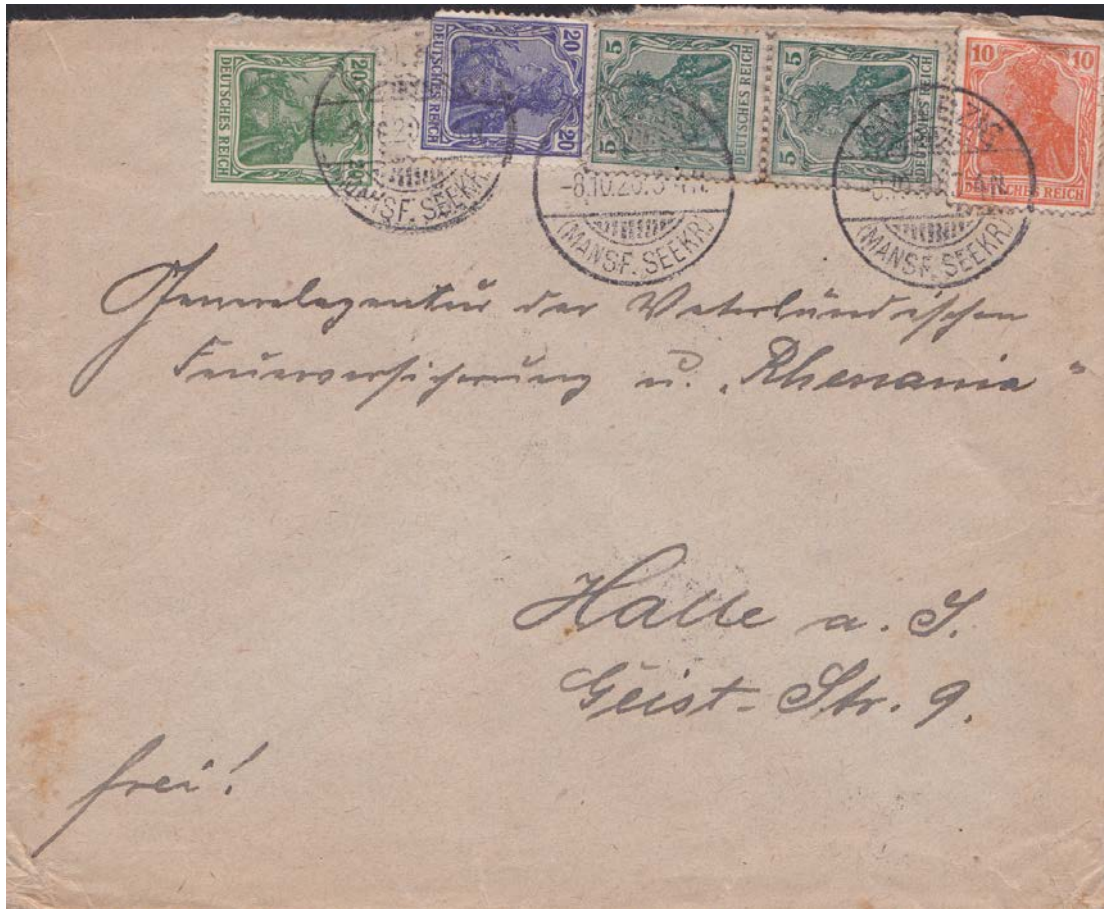 20 20
DEUTSCHES REICH
20 20
DEUTSCHES REICH
5 5
DEUTSCHES REICH
5 5
DEUTSCHES REICH
10 10
DEUTSCHES REICH
(MANSF. SEEKR.)
-8.10.20.3-4 N.
(MANSF. SEEKR.)
(MANSF. SEEKR.)
Generalagentur der Vaterländischen
Feuerversicherung u. „Rhenania“
Halle a. S.
Geist-Str. 9.
frei!